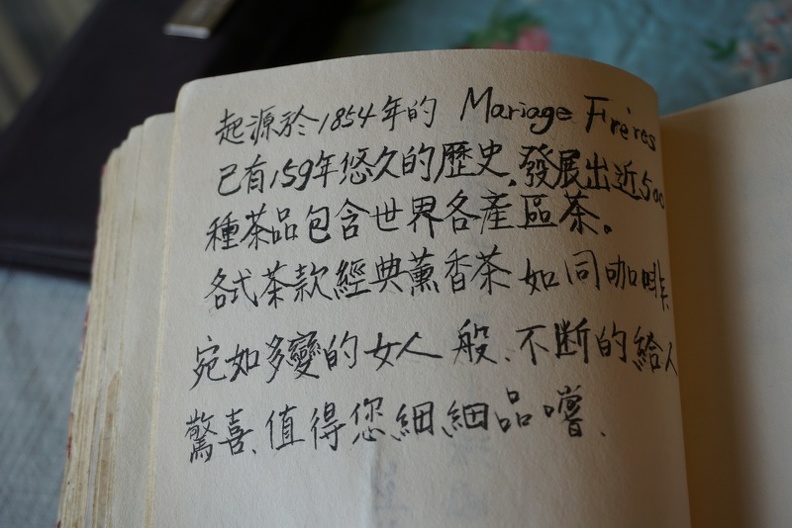 起源於1854年的 Mariage Frères
已有159年悠久的歷史,發展出近500
種茶品包含世界各產區茶。
各式茶款經典薰香茶如同咖啡
宛如多變的女人般、不斷的給人
驚喜、值得您細細品嚐、